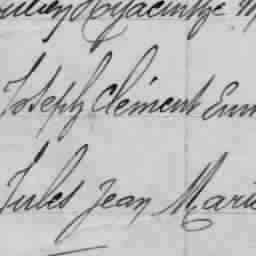 Hyacinthe
Joseph Clément
Jules Jean Marie